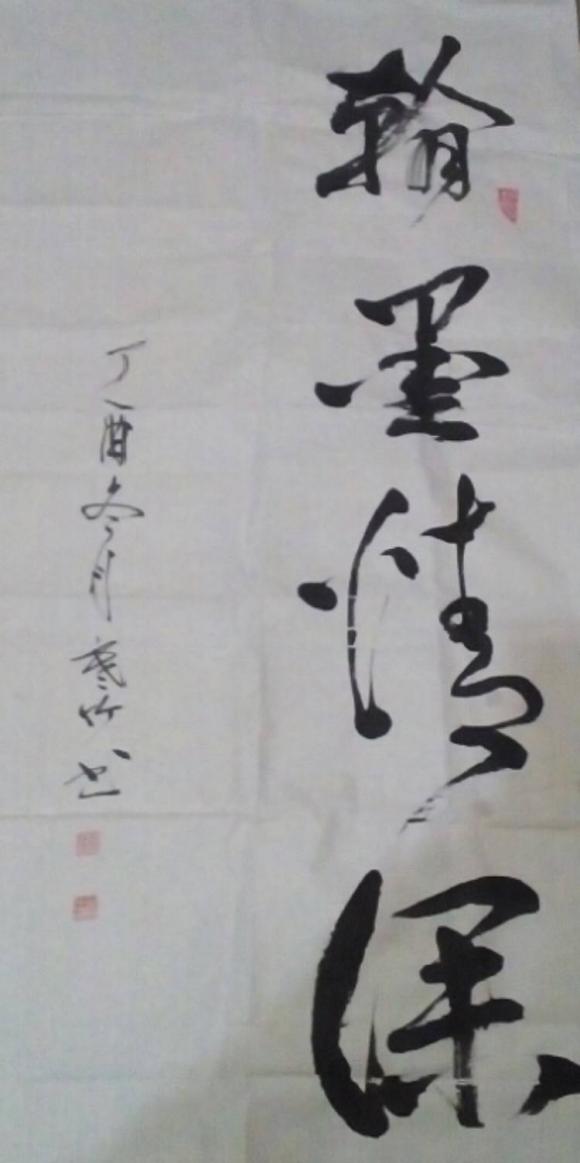 翰墨情深
丁酉冬月寒竹书